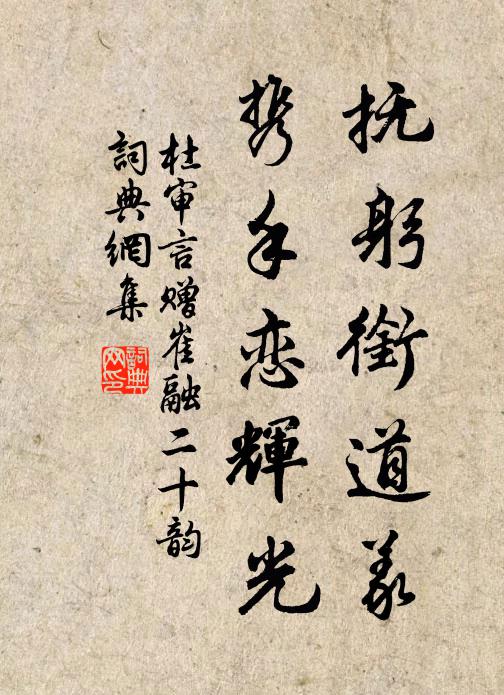 抚躬銜道義
携手恋輝光
杜审言赠崔融二十韵
詞典網集
詞典网印